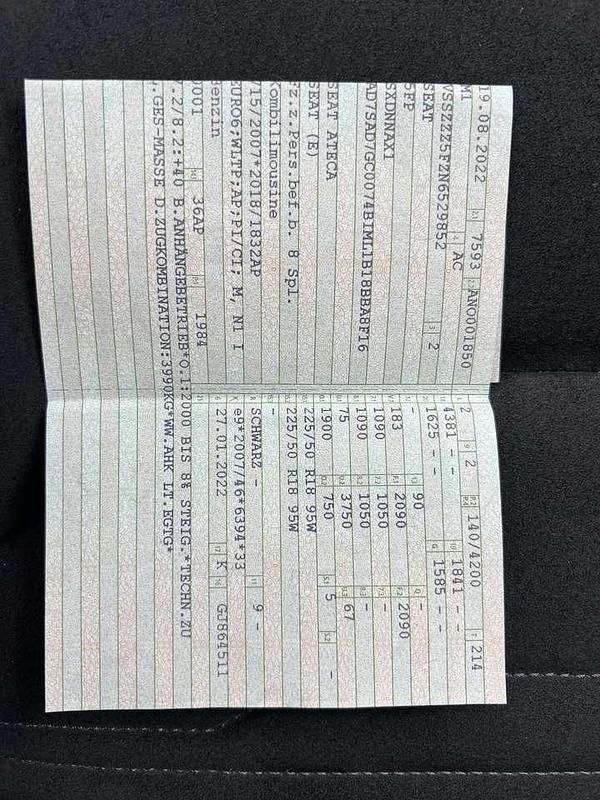 19.08.2022 7593 ANO001850
M1 AC
VSSZZZ5FZN6529852 2
SEAT
5FP
SXDNNAX1
AD7SAD7GC0074BIML1B18BBA8F16
SEAT ATECA
SEAT (E)
Fz.z.Pers.bef.b. 8 Spl.
Kombilimousine
715/2007*2018/1832AP
EURO6;WLTP;AP;PI/CI; M, N1 I
Benzin
0001 36AP 1984
7.2/8.2:+40 B.ANHÄNGEBETRIEB*O.1:2000 BIS 8% STEIG.*TECHN.ZU
.GES-MASSE D.ZUGKOMBINATION:3990KG*WW.AHK LT. EGTG*
2 9 2 P.2 P.4 140/4200 T 214
4381 - - 1841 - -
1625 - - G 1585 - -
- 90 -
183 2090 2090
1090 1050 -
1090 1050 -
75 3750 67
1900 750 5 -
225/50 R18 95W
225/50 R18 95W
-
SCHWARZ - 9 -
e9*2007/46*6394*33
27.01.2022 K GJ864511